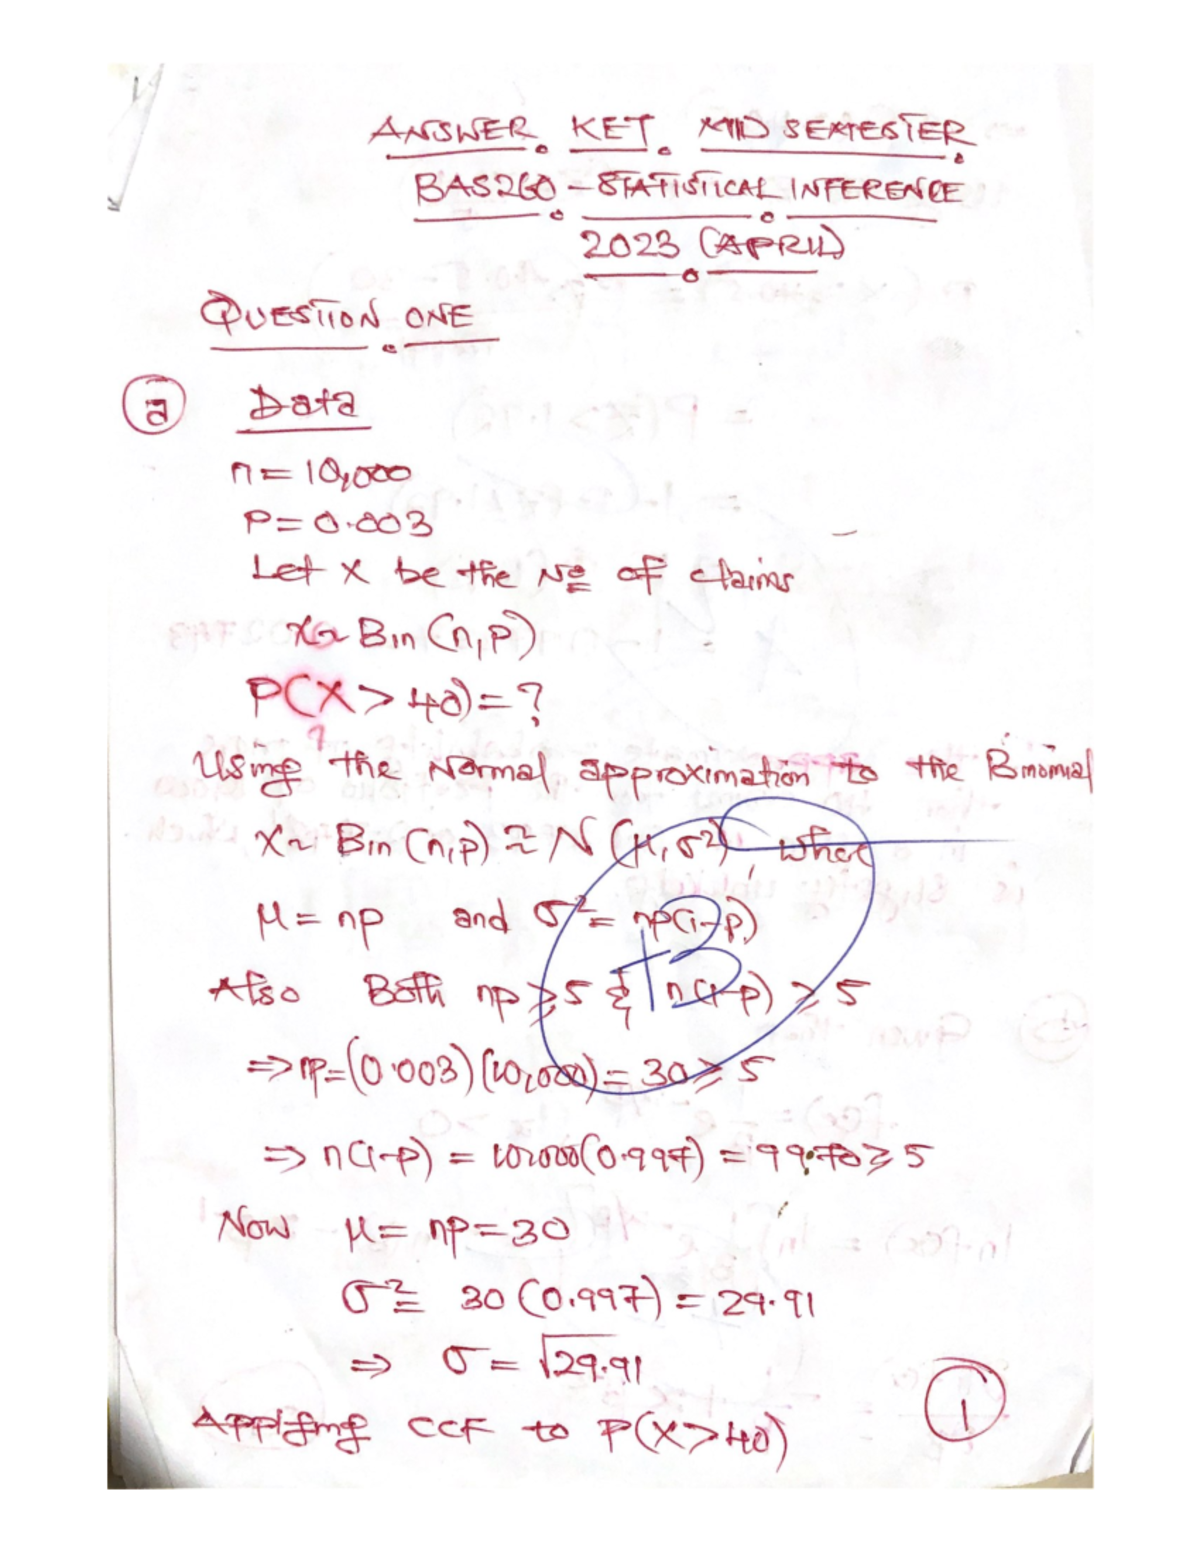 ANSWER KET MID SEMESTER
BAS260 - STATISTICAL INFERENCE
2023 (APRIL)
QUESTION ONE
(a) Data
n = 10,000
P = 0.003
Let X be the № of claims
X ~ Bin (n, p)
P(X > 40) = ?
Using the Normal approximation to the Binomial
X ~ Bin (n, p) ≈ N (μ, σ²), where
μ = np and σ² = np(1-p)
Also Both np ≥ 5 & n(1-p) ≥ 5
⇒ np = (0.003)(10,000) = 30 ≥ 5
⇒ n(1-p) = 10,000(0.997) = 9970 ≥ 5
Now μ = np = 30
σ² = 30 (0.997) = 29.91
⇒ σ = √29.91
Applying CCF to P(X > 40)
1